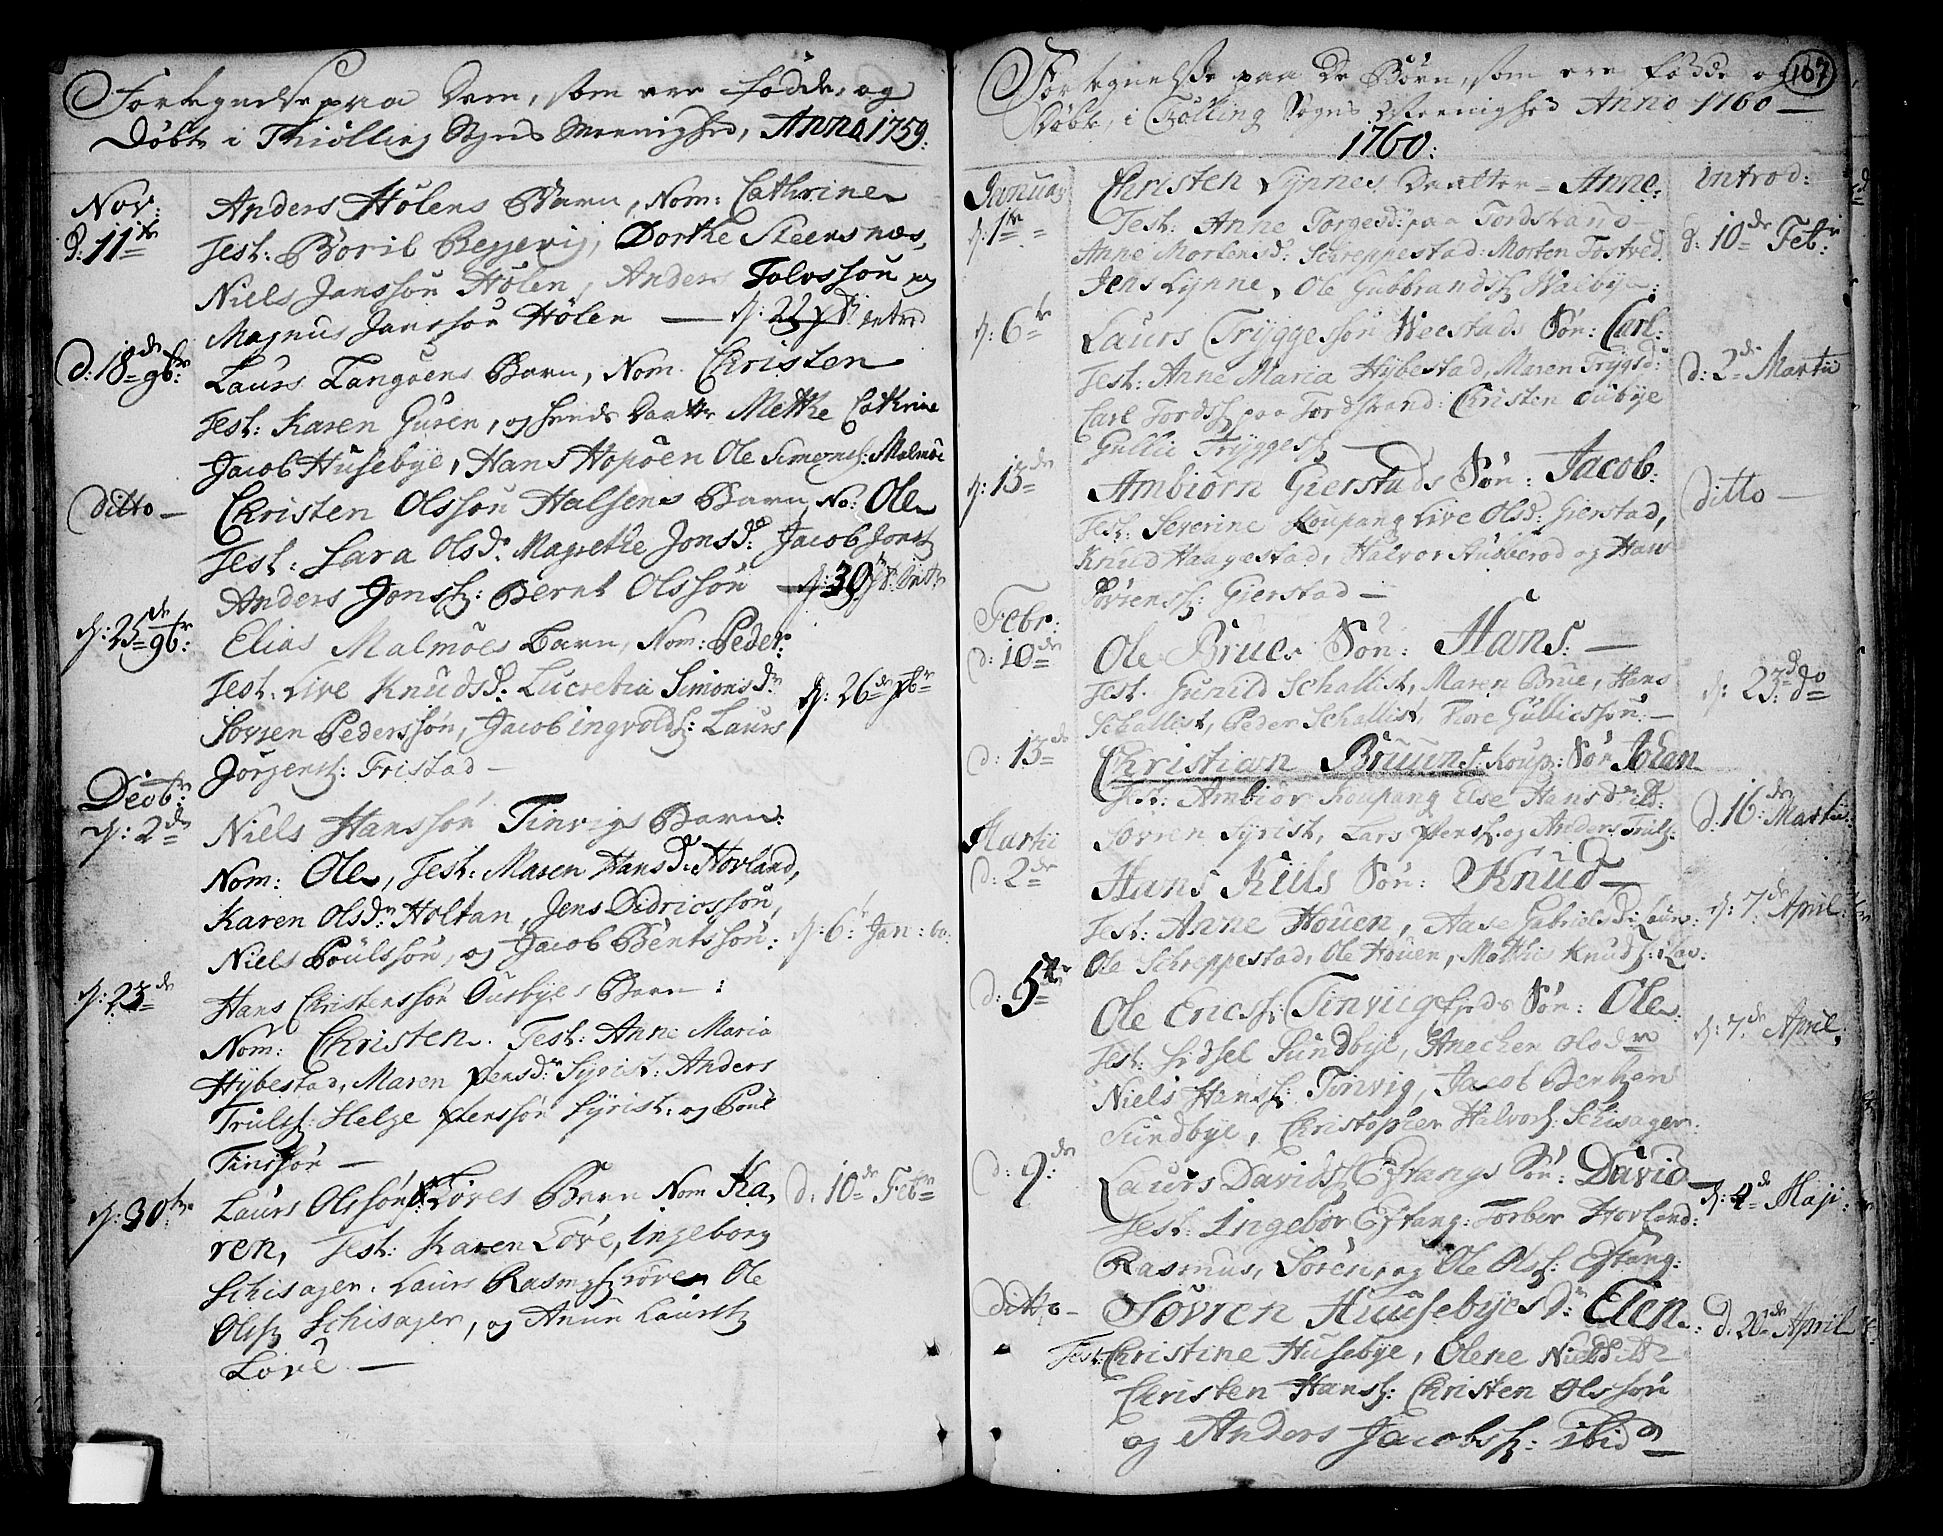 Fortegnelse paa Dem, som ere fødde, og
Døbte i Thiølling Sogns Meenighed, Anno 1759.
Nov:
d: 11te
Anders Hølens Barn, Nom: Cathrine
Test: Boril Beggevig, Dorthe Steensnæs,
Niels Janssøn Hølen, Anders Tolvssøn og
Magnus Janssøn Hølen — d: 22 Xbr introd
d: 18de 9br:
Laurs Langøens Barn, Nom. Christen
Test: Karen Guren, og hends Daatter Mette Cathrine
Jacob Husebye, Hans Hopøen Ole Simons: Malmøe
Ditto —
Christen Olssøn Halsens Barn, No: Ole
Test: Sara Olsd: Magrethe Jonsd: Jacob Jons
Anders Jons: Bernt Olssøn — d: 30
d: 25de 9br:
Elias Malmöes Barn, Nom: Peder.
Test: Live Knudsd: Lucretia Simonsdr
Sørren Pederssøn, Jacob ingvolds: Laurs
d: 26de Xbr
Jørgens: Fristad —
Decbr:
d: 2de
Niels Hanssøn Tinvigs Barn:
Nom: Ole, Test: Maren Hansd: Hovland,
Karen Olsdr Holtan, Jens Didricssøn,
Niels Poulssøn, og Jacob Bentssøn:
d: 6t Jan: 60.
d: 23de
Hans Christenssøn Ousbyes Barn:
Nom: Christen. Test: Anne Maria
Hybestad, Maren Pensdr Syrist: Anders
Truls: Helge Penssøn Syrist: og Poul
Tinssøn —
d: 30te
Laurs Olssøn Løves Barn Nom Ka,
d: 10de Febr
ren, Test: Karen Løve, Ingeborg
Schisager. Laurs Rasmus: Løve Ole
Ols Schisager, og Anun Laurs
Løve —
Fortegnelse paa De Børn, som ere fødde og
167
Døbte, i Tiølling Sogns Meenighed Anno 1760 —
1760:
Januar
d: 1te
Christen Lynnes Daatter — Anne.
introd:
Test: Anne Torgesd: paa Tordstrand
Anne Mortensd: Schreppestad: Morten Tostved
d: 10de Febr
Jens Lynne, Ole Gubbrands Walbye:
d: 6te
Laurs Tryggessøn Weestads Søn: Carl:
Test: Anne Maria Hybestad, Maren Trygsd:
d: 2de Martii
Carl Tords paa Tordstrand: Christen Oubye
Gullic Trygges
d: 13de
Ambiørn Gierstads Søn: Jacob.
Ditto —
Test: Severine Koupang Live Olsd: Gierstad,
Knud Haagestad, Halvor Stubberød og Hans
Sørens: Gierstad —
Febr:
d: 10de
Ole Brues Søn: Hans. —
Test. Gunild Schallist, Maren Brue, Hans
d: 23de do
Schallist, Peder Schallist, Tore Gullicssøn: —
d: 13de
Christian Bruuns Koup: Søn Johan
Test: Ambiør Koupang Else Hansdr
Sørren Syrist, Lars Pens og Anders Truls:
d: 16de Martii
Martii
d: 2de
Hans Kiils Søn: Knud —
Test: Anne Houen, Aase Gabrielsd: Lauv:
d: 7de April
Ole Schreppestad, Ole Houen, Mathis Knuds: Lav.
d: 5te
Ole Erics: Tinvigfieds Søn: Ole
Test: Sidsel Sundbye, Anechen Olsdr
d: 7de April.
Niels Hans: Tinvig, Jacob Bentsen
Sundbye, Christopher Halvors: Schisager.
d: 9de
Laurs Davids Eftangs Søn: David
d: 4de Maji:
Test: Ingebør Eftang: Torber Hovland:
Rasmus, Søren, og Ole Ols: Eftang:
Ditto —
Sørren Huusebyes Dr: Elen
d: 20de April
Test: Christine Husebye, Olene Nielsd
Christen Hans: Christen Olssøn
og Anders Jacobs: ibid